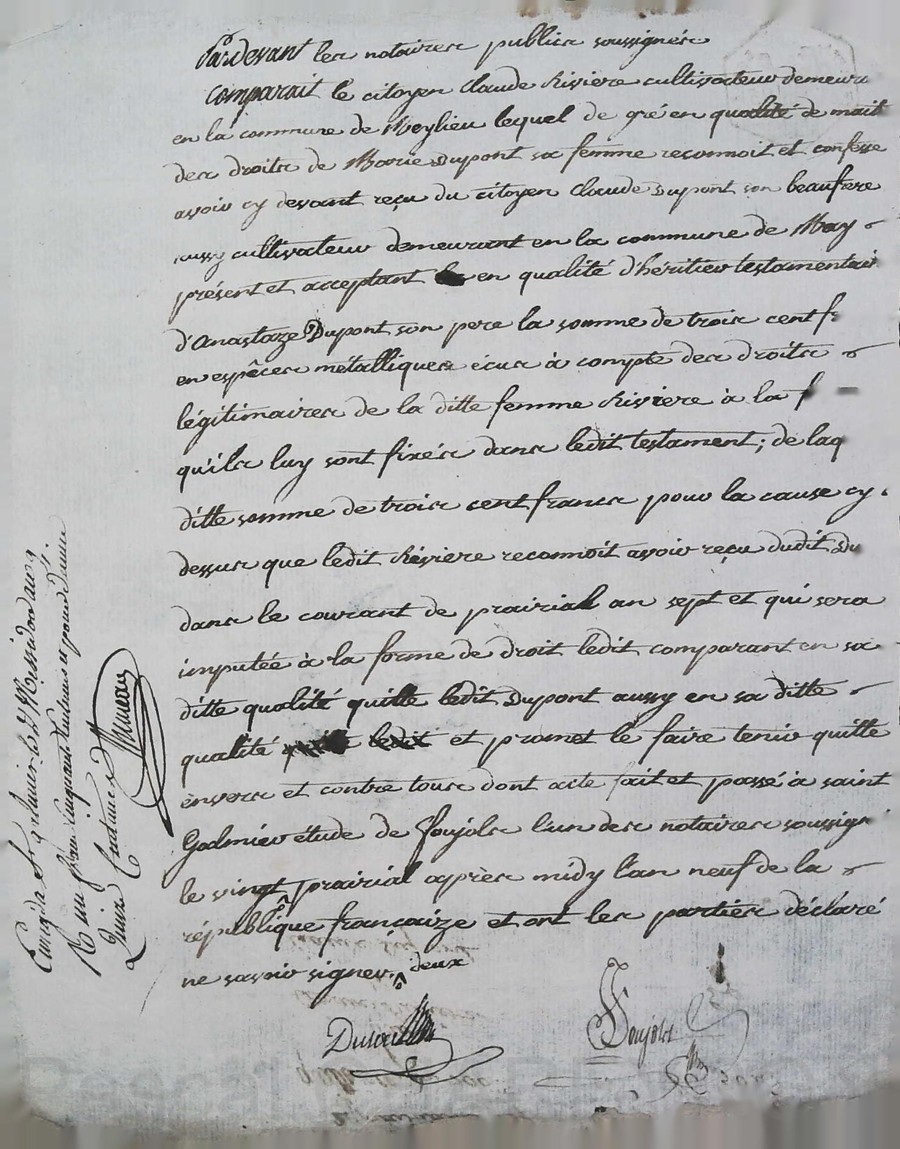 Pardevant les notaires publics soussignés
comparait le citoyen Claude Riviere cultivateur demeura
en la commune de Meylieu lequel de gré en qualité de mait
des droits de Marie Dupont sa femme reconnoit et confesse
avoir cy devant reçu du citoyen Claude Dupont son beaufrere
aussy cultivateur demeurant en la commune de
présent et acceptant en qualité d'héritier testamentair
d'Anastaze Dupont son pere la somme de trois cent f
en espêces métalliques écus à compte des droits
légitimaires de la ditte femme Riviere à la f
qu'ils luy sont fixés dans ledit testament ; de laq
ditte somme de trois cent francs pour la cause cy
dessus que ledit Riviere reconnoit avoir reçu dudit Du
dans le courant de prairial an sept et qui sera
imputée à la forme de droit ledit comparant en sa
ditte qualité quitte ledit Dupont aussy en sa ditte
qualité et promet le faire tenir quitte
envers et contre tous dont acte fait et passé à saint
Galmier étude de Foujols l'un des notaires soussign
le vingt prairial après midy l'an neuf de la
républîque françaize et ont les parties déclaré
ne savoir signer. deux
Foujols